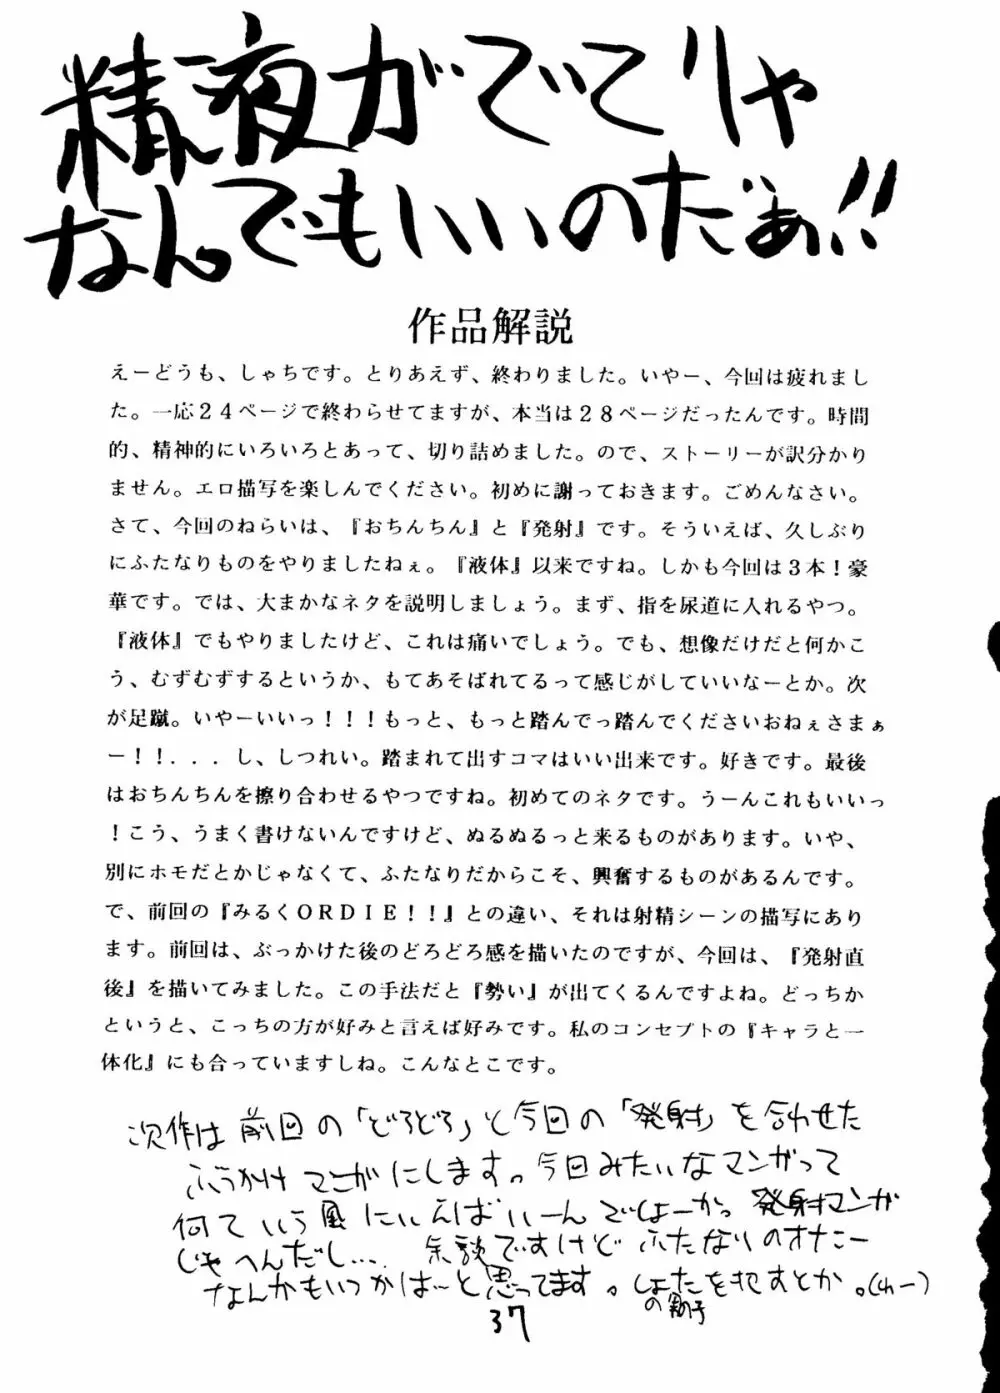 精液がでてりゃ
なんでもいいのだぁ!!
作品解説
えーどうも、しゃちです。とりあえず、終わりました。いやー、今回は疲れまし
た。一応24ページで終わらせてますが、本当は28ページだったんです。時間
的、精神的にいろいろとあって、切り詰めました。ので、ストーリーが訳分かり
ません。エロ描写を楽しんでください。初めに謝っておきます。ごめんなさい。
さて、今回のねらいは、『おちんちん』と『発射』です。そういえば、久しぶり
にふたなりものをやりましたねぇ。『液体』以来ですね。しかも今回は3本!豪
華です。では、大まかなネタを説明しましょう。まず、指を尿道に入れるやつ。
『液体』でもやりましたけど、これは痛いでしょう。でも、想像だけだと何かこ
う、むずむずするというか、もてあそばれてるって感じがしていいなーとか。次
が足蹴。いやーいいっ!!!もっと、もっと踏んでっ踏んでくださいおねぇさまぁ
ー!!...し、しつれい。踏まれて出すコマはいい出来です。好きです。最後
はおちんちんを擦り合わせるやつですね。初めてのネタです。うーんこれもいいっ
!こう、うまく書けないんですけど、ぬるぬるっと来るものがあります。いや、
別にホモだとかじゃなくて、ふたなりだからこそ、興奮するものがあるんです。
で、前回の『みるくORDIE!!』との違い、それは射精シーンの描写にあり
ます。前回は、ぶっかけた後のどろどろ感を描いたのですが、今回は、『発射直
後』を描いてみました。この手法だと『勢い』が出てくるんですよね。どっちか
というと、こっちの方が好みと言えば好みです。私のコンセプトの『キャラと一
体化』にも合っていますしね。こんなとこです。
次作は前回の「どろどろ」と今回の「発射」を合わせた
ぶっかけマンガにします。今回みたいなマンガって
何ていう風にいえばいーんでしょーかっ 発射マンガ
じゃへんだし... 余談ですけど ふたなりのオナニー
なんかもいつかは…と思ってます。
37